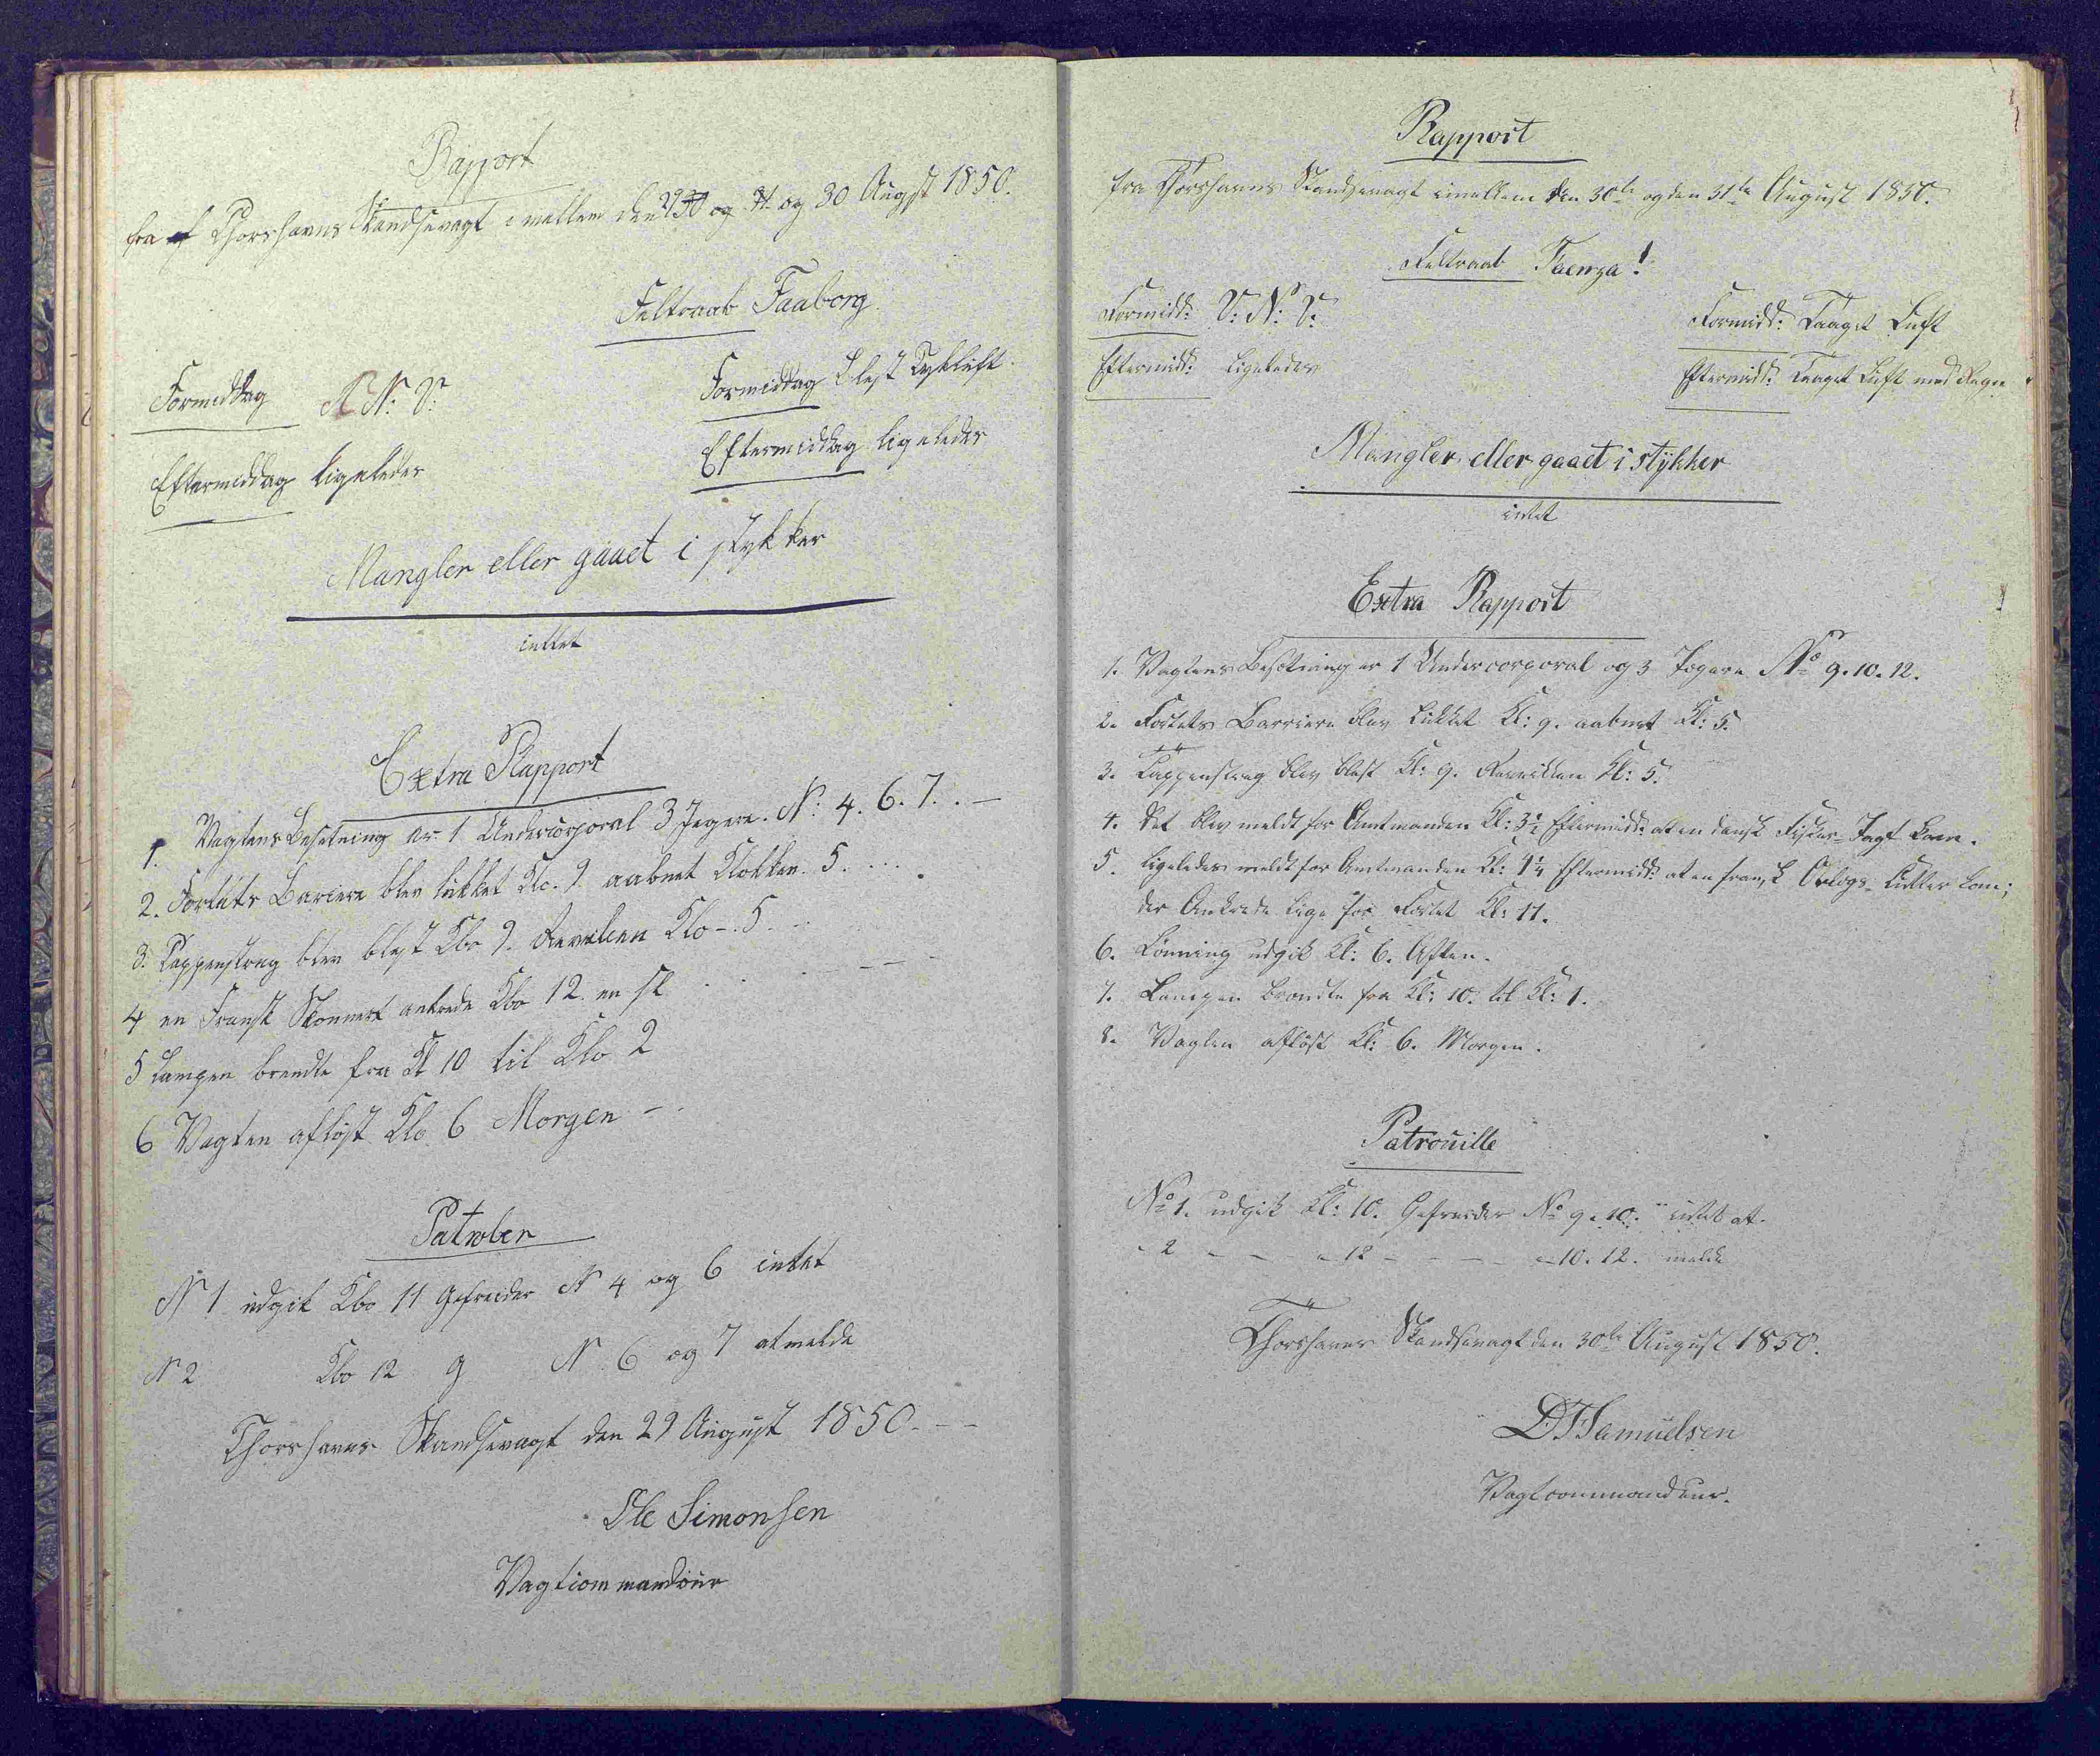 Rapport
fra af Thorshavns Skandsevagt imellem den 29 30 og 31 og 30 Augst 1850.
Feltraab Faaborg
Formiddag N. V:
Formiddag blest Tykluft.
Eftermiddag ligeledes
Eftermiddag ligeledes
Mangler eller gaaet i stykker
inttet
Extra Rapport
1. Vagtens Besetning er 1 Undercorporal 3 Jegere. N: 4. 6. 7. . —
2. Fortets Bariere blev lukket Klo. 9. aabnet Klokken. 5. ...
3. Tappenstreg blev blest Klo 9. Revelien Klo -. 5. ..
4 en Fransk Skonnert ankrede Klo 12.
5 Lampen brendte fra Kl 10 til Klo 2
6 Vagten afløst Klo 6 Morgen — .
Patrolen
N 1 udgik Klo 11 Gefreider N 4 og 6 intet
N 2 Klo 12 g N 6 og 7 at melde
Thorshavns Skandsevagt den 29 August 1850. — —
Ole Simonsen
Vagtcommandeur
Rapport
fra Thorshavns Skandsevagt imellem den 30te og den 31te August 1850.
Feltraab Faenza!
Formidd: V: N: V:
Formidd: Taaget Luft
Eftermidd: ligeledes
Eftermidd: Taaget Luft med Regn
Mangler eller gaaet i stykker
intet
Extra Rapport
1. Vagtens Besætning er 1 Undercorporal og 3 Jægere No 9. 10. 12.
2. Fortets Barriere blev lukket Kl: 9. aabnet Kl: 5.
3. Tappenstreg blev blæst Kl: 9. Revellien Kl: 5.
4. Det blev meldt for Amtmanden Kl: 3½ Eftermidd: at en dansk Fisker-Jagt kom.
5. Ligeledes meldt for Amtmanden Kl: 4¼ Eftermidd: at en fransk Orlogs-Kutter kom;
der Ankrede lige for Fortet Kl: 11.
6. Lønning udgik Kl: 6. Aften.
7. Lampen brændte fra Kl: 10. til Kl: 1.
8. Vagten afløst Kl: 6. Morgen.
Patrouille
No 1. udgik Kl: 10. Gefreider No 9. 10. intet at
" 2 — — " 12 — — — " 10. 12. melde
Thorshavns Skandsevagt den 30te August 1850.
DJSamuelsen
Vagtcommandeur.